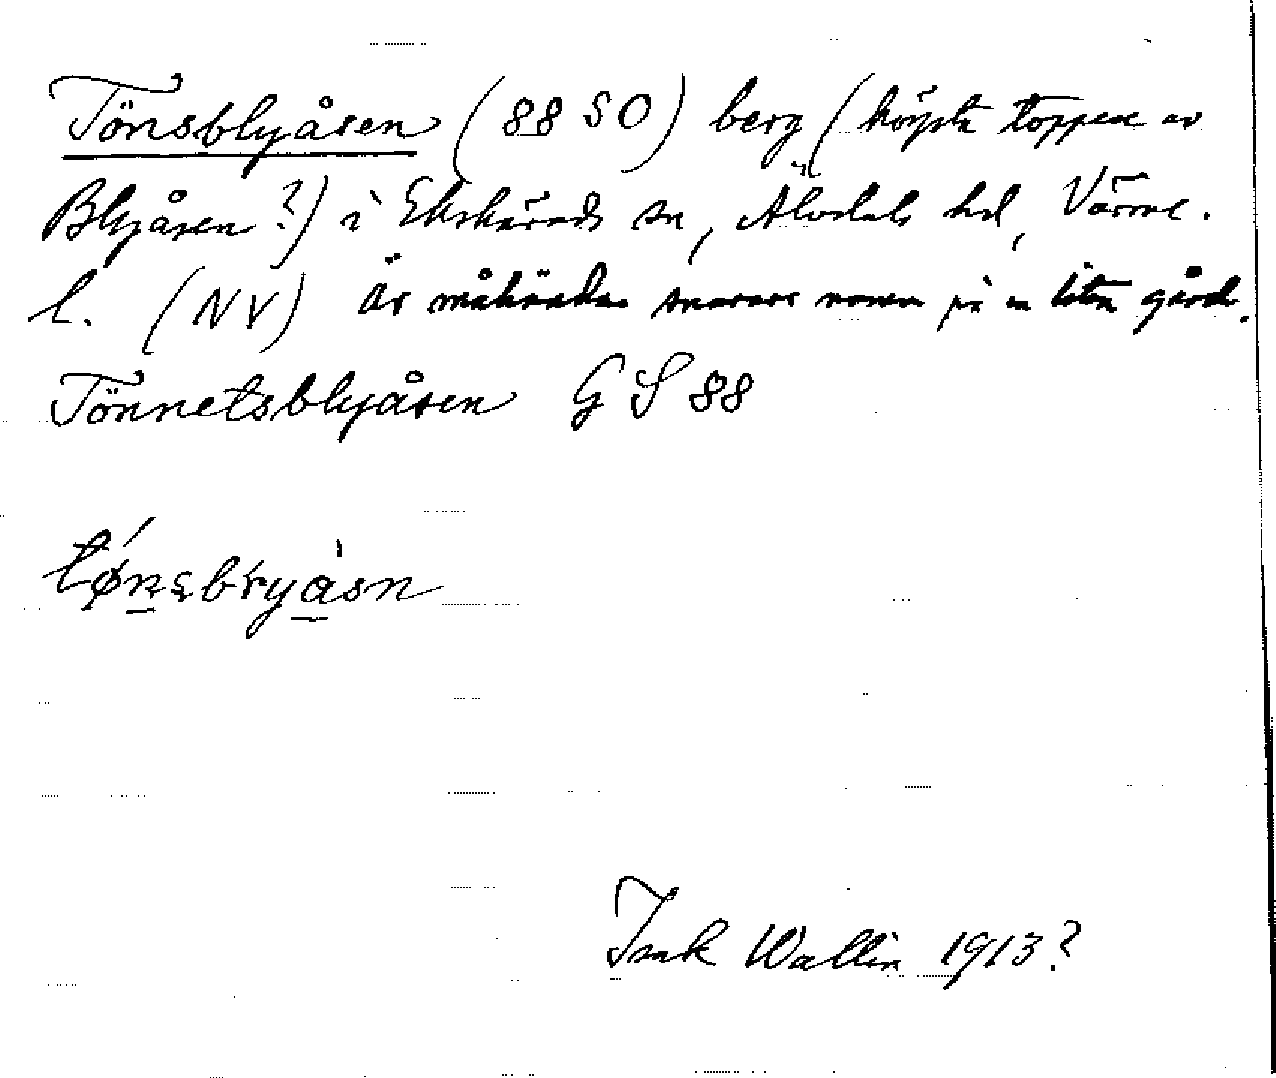 Tönsblyåsen (88 SO) berg (högsta toppen av
Blyåsen?) i Ekshärads sn, Älvdals hd, Värml.
l. (NV) Är måhända snarare namn på en liten gård.
Tönnetsblyåsen GS 88
Isak Wallin 1913?